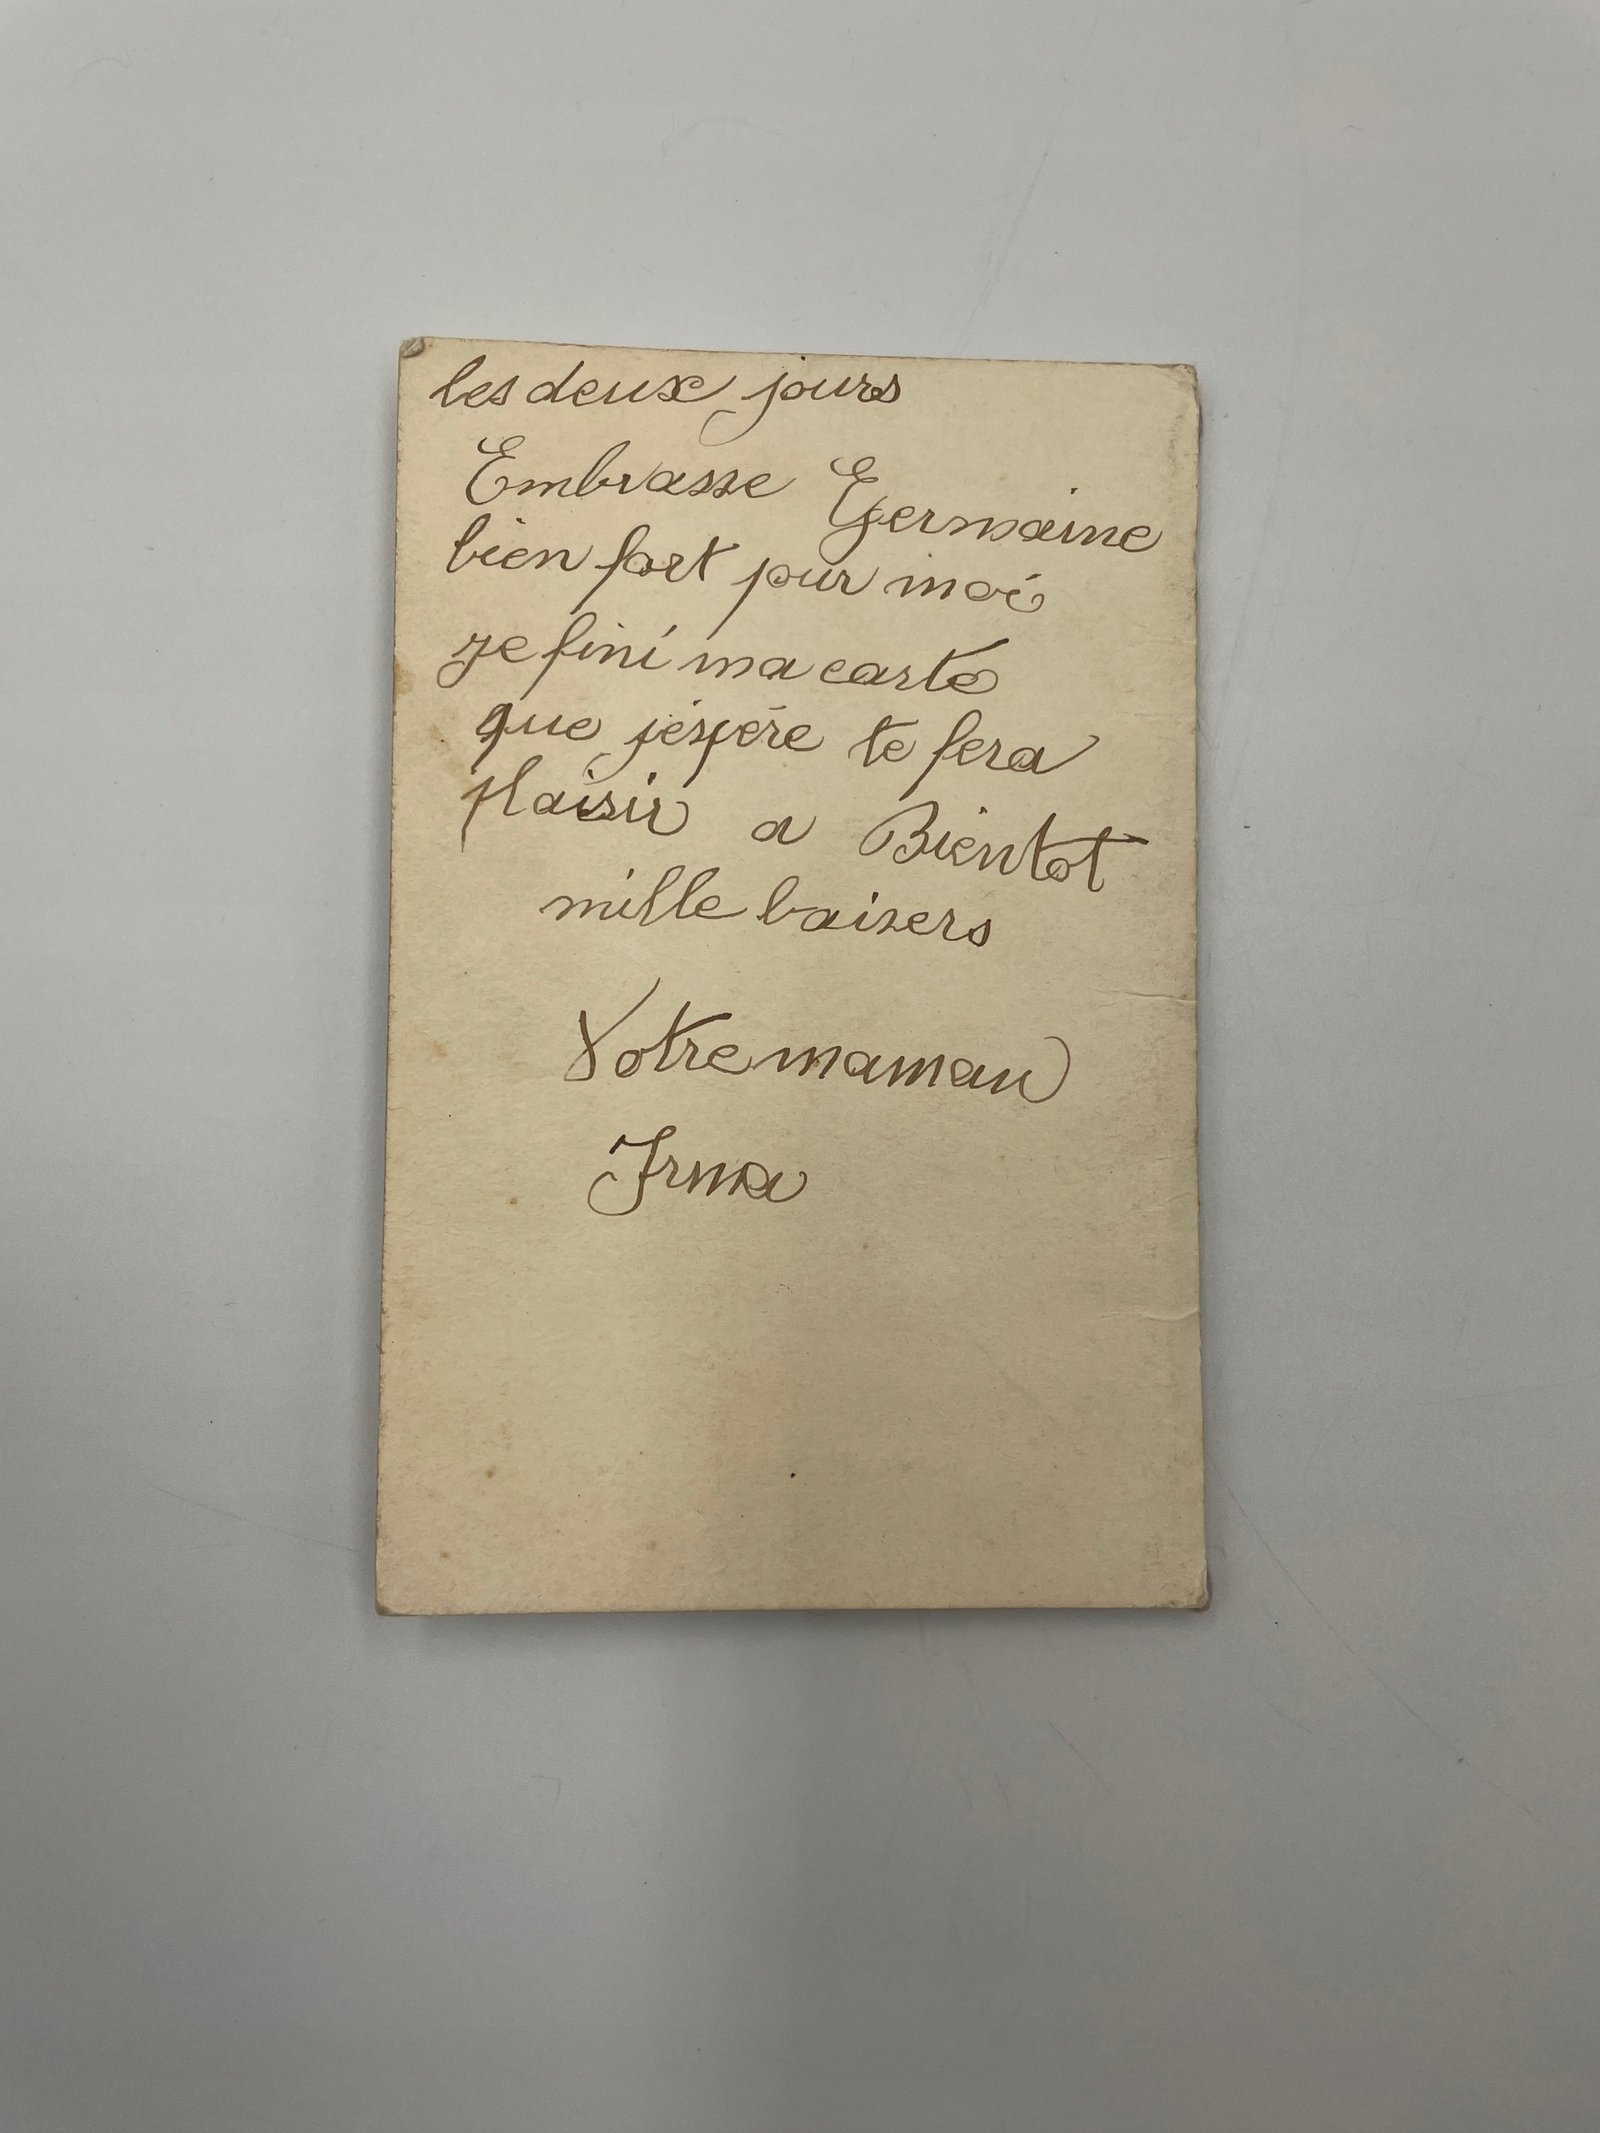 les deux jours
Embrasse Germaine
bien fort pour moi
je fini ma carte
que j'éspére te fera
plaisir a Bientot
mille baisers
Votre maman
Irma